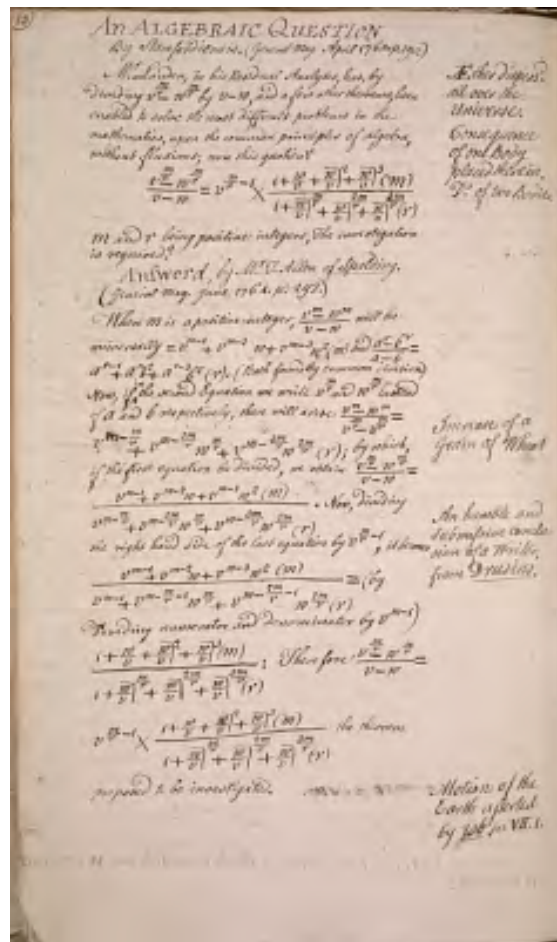 An ALGEBRAIC QUESTION
By (General Mag. April 1764 p. 192)
Mr. Landen, in his Residual Analysis, has, by
dividing v^{m/r} - w^{m/r} by v-w, and a few other theorems, been
enabled to solve the most difficult problems in the
mathematics, upon the common principles of algebra,
without fluxions; now this quotient
(v^{m/r} - w^{m/r})/(v-w) = v^{m/r - 1} × (1 + w/v + w/v|² + w/v|³ (m))/(1 + w/v|^{m/r} + w/v|^{2m/r} + w/v|^{3m/r} (r))
m and r being positive integers, The investigation
is required?
Answered, by Mr. T. of Spalding.
(General Mag. June 1764. p. 292.)
When m is a positive integer, (v^m - w^m)/(v-w) will be
universally = v^{m-1} + v^{m-2} w + v^{m-3} w² (m) and (a^r - b^r)/(a-b) =
a^{r-1} + a^{r-2} b + a^{r-3} b² (r). (Both found by common division)
Now, if in the second Equation we write v^{m/r} and w^{m/r} instead
of a and b respectively, there will arise (v^m - w^m)/(v^{m/r} - w^{m/r}) =
v^{m - m/r} + v^{m - 2m/r} w^{m/r} + v^{m - 3m/r} w^{2m/r} (r); by which,
if the first equation be divided, we obtain (v^{m/r} - w^{m/r})/(v-w) =
(v^{m-1} + v^{m-2} w + v^{m-3} w² (m))/(v^{m - m/r} + v^{m - 2m/r} w^{m/r} + v^{m - 3m/r} w^{2m/r} (r)). Now, dividing
the right hand side of the last equation by v^{m/r - 1}, it becomes
(v^{m-1} + v^{m-2} w + v^{m-3} w² (m))/(v^{m-1} + v^{m - m/r - 1} w^{m/r} + v^{m - 2m/r - 1} w^{2m/r} (r)) = (by
Dividing numerator and denominator by v^{m-1})
(1 + w/v + w/v|² + w/v|³ (m))/(1 + w/v|^{m/r} + w/v|^{2m/r} + w/v|^{3m/r} (r)); Therefore (v^{m/r} - w^{m/r})/(v-w) =
v^{m/r - 1} × (1 + w/v + w/v|² + w/v|³ (m))/(1 + w/v|^{m/r} + w/v|^{2m/r} + w/v|^{3m/r} (r)) the theorem
proposed to be investigated.
Æther dispers'd
all over the
Universe.
Consequence
of one Body
placed therein.
Do. of two Bodies.
Increase of a
Grain of Wheat
An humble and
submissive
sion of a Writer,
from
Motion of the
Earth asserted
by Job in VII.1.